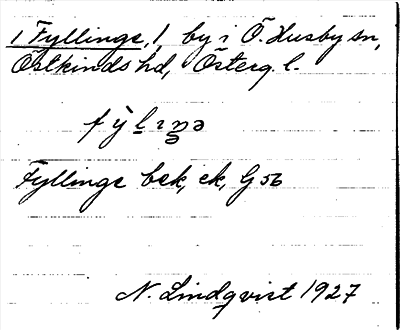 1 Fyllinge, 1 by i Ö. Husby sn,
Östkinds hd, Österg. l.
Fyllinge bek, ek, G 56
N. Lindqvist 1927